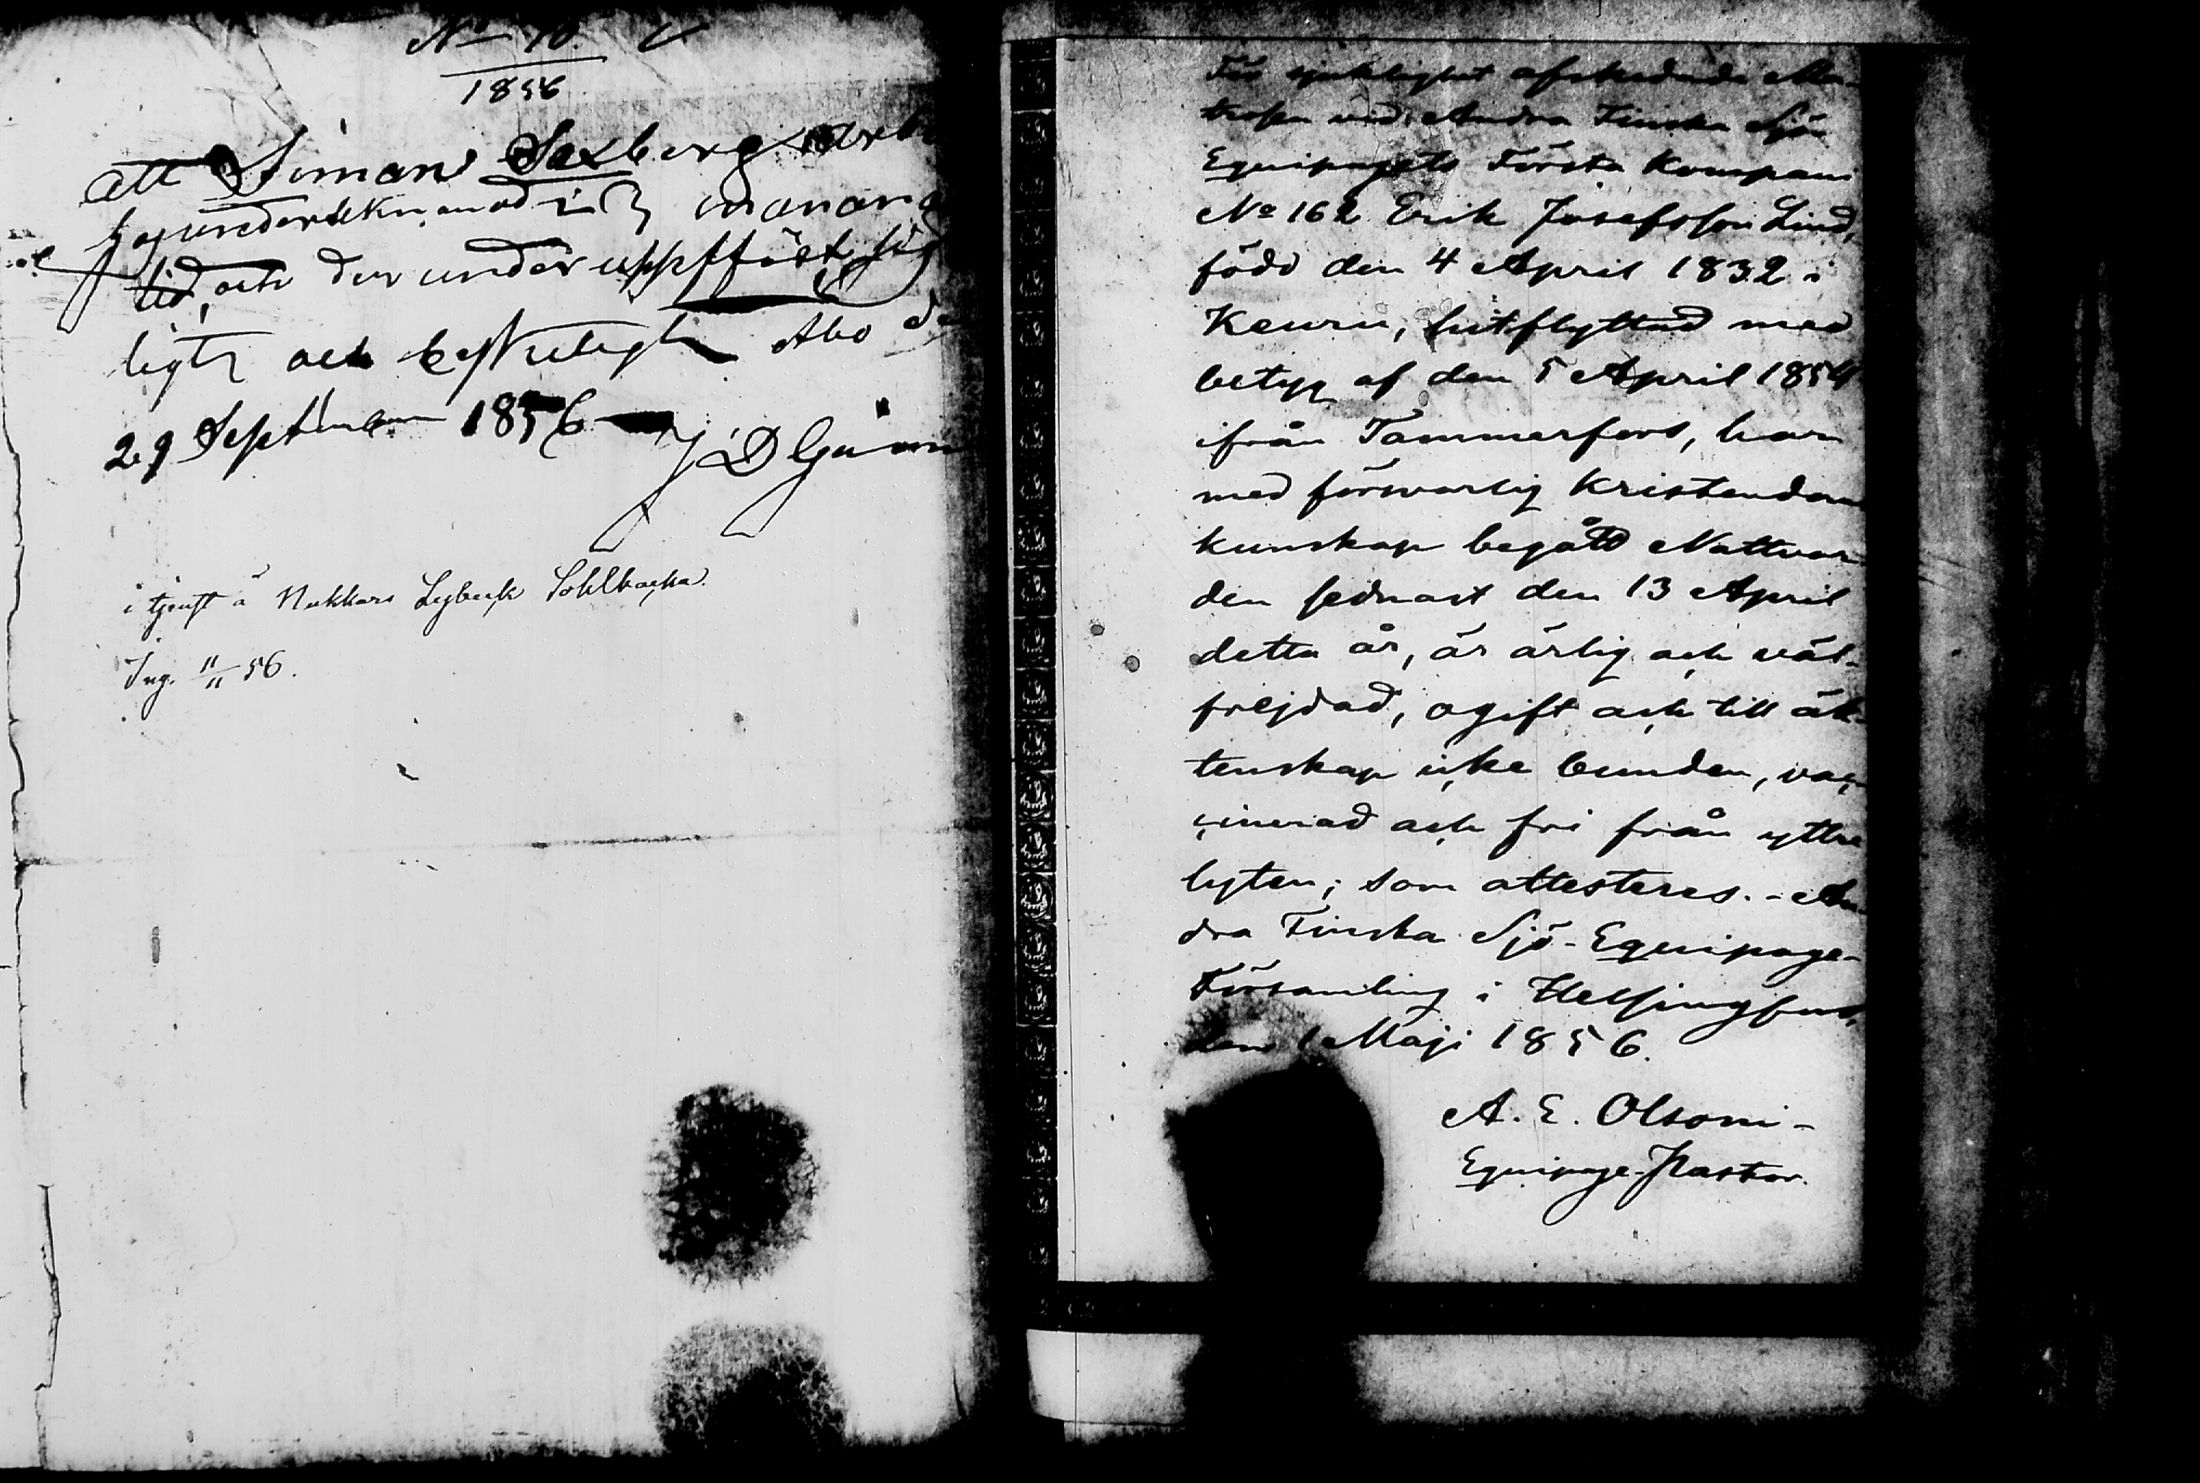 No 10.
1856
att Simon Saxberg
hos underteknanad i 3 månans
tid, och der under uppfföst sig
ligt och beskeligt Abo de
29 September 1856
J D
i tjenst å Nukkars Lybeck Sohlbacka.
Ing. 11/11 56.
För sjuklighet afskedade Ma-
trosen vid Andra Finska Sjö
Equipagets Första Kompani
No 162 Erik Josefsson Lind,
född den 4 April 1832 i
Keuru, hitflyttad med
betyg af den 5 April 1854
ifrån Tammerfors, har
med försvarlig Kristendom
kunskap begått Nattvar
den sednast den 13 April
detta år, är ärlig och väl-
frejdad, ogift och till äk-
tenskap icke bunden, vac-
cinerad och fri från yttre
lyten; som attesteres. - An-
dra Finska Sjö-Equipage-
Församling i Helsingfors,
den 1 Maji 1856.
A. E. Olsoni -
Equipage-Pastor.